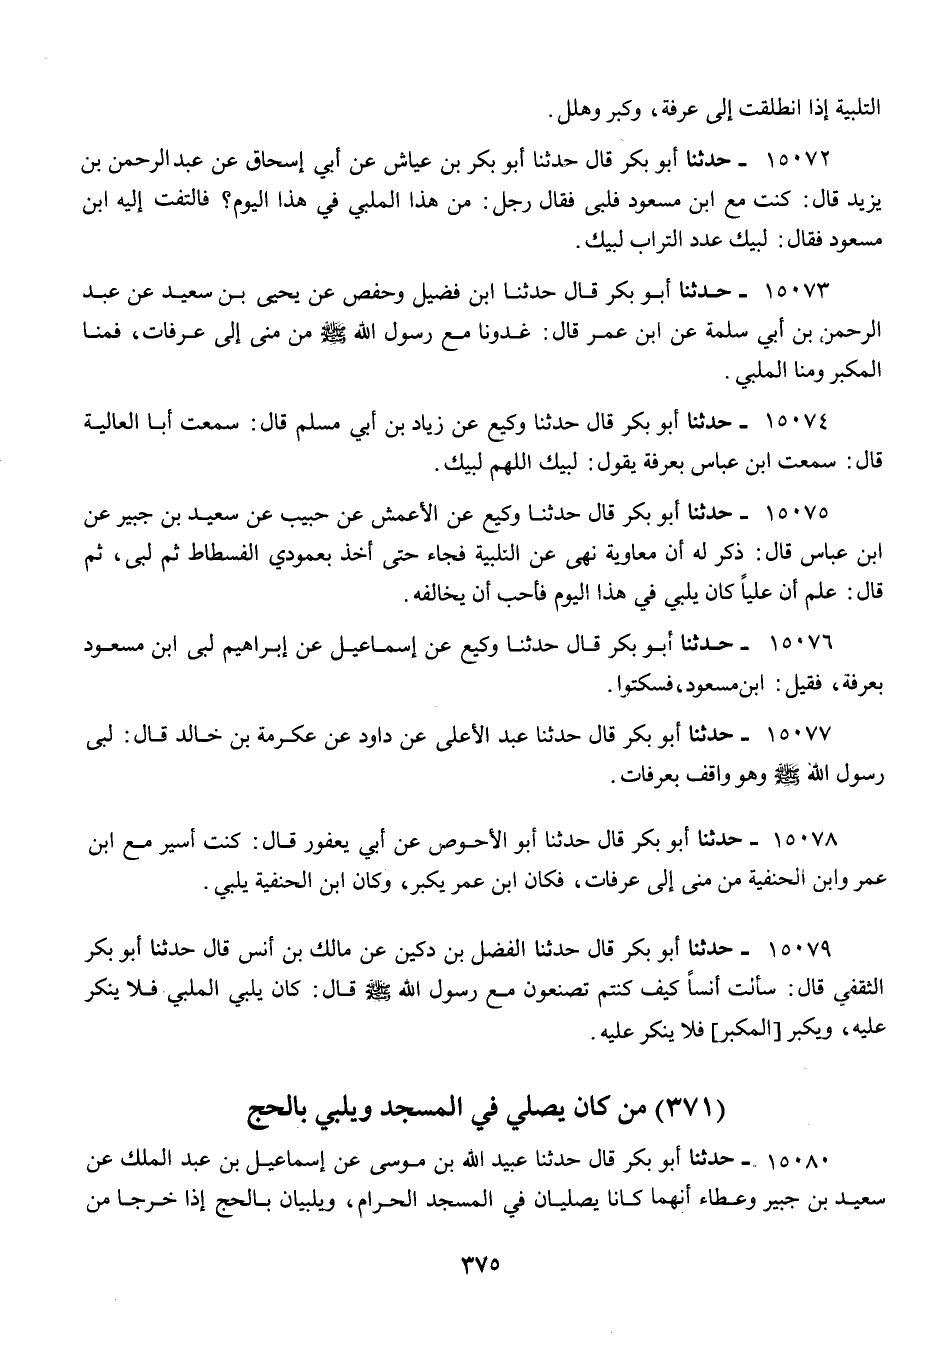 التلبية إذا انطلقت إلى عرفة، وكبر وهلل.
١٥٠٧٢ ـ حدثنا أبو بكر قال حدثنا أبو بكر بن عياش عن أبي إسحاق عن عبد الرحمن بن
يزيد قال: كنت مع ابن مسعود فلبى فقال رجل: من هذا الملبي في هذا اليوم؟ فالتفت إليه ابن
مسعود فقال: لبيك عدد التراب لبيك.
١٥٠٧٣ ـ حدثنا أبو بكر قال حدثنا ابن فضيل وحفص عن يحيى بن سعيد عن عبد
الرحمن بن أبي سلمة عن ابن عمر قال: غدونا مع رسول الله ﷺ من منى إلى عرفات، فمنا
المكبر ومنا الملبي.
١٥٠٧٤ ـ حدثنا أبو بكر قال حدثنا وكيع عن زياد بن أبي مسلم قال: سمعت أبا العالية
قال: سمعت ابن عباس بعرفة يقول: لبيك اللهم لبيك.
١٥٠٧٥ ـ حدثنا أبو بكر قال حدثنا وكيع عن الأعمش عن حبيب عن سعيد بن جبير عن
ابن عباس قال: ذكر له أن معاوية نهى عن التلبية فجاء حتى أخذ بعمودي الفسطاط ثم لبى، ثم
قال: علم أن علياً كان يلبي في هذا اليوم فأحب أن يخالفه.
١٥٠٧٦ ـ حدثنا أبو بكر قال حدثنا وكيع عن إسماعيل عن إبراهيم لبى ابن مسعود
بعرفة، فقيل: ابن مسعود، فسكتوا.
١٥٠٧٧ ـ حدثنا أبو بكر قال حدثنا عبد الأعلى عن داود عن عكرمة بن خالد قال: لبى
رسول الله ﷺ وهو واقف بعرفات.
١٥٠٧٨ ـ حدثنا أبو بكر قال حدثنا أبو الأحوص عن أبي يعفور قال: كنت أسير مع ابن
عمر وابن الحنفية من منى إلى عرفات، فكان ابن عمر يكبر، وكان ابن الحنفية يلبي.
١٥٠٧٩ ـ حدثنا أبو بكر قال حدثنا الفضل بن دكين عن مالك بن أنس قال حدثنا أبو بكر
الثقفي قال: سألت أنساً كيف كنتم تصنعون مع رسول الله ﷺ قال: كان يلبي الملبي فلا ينكر
عليه، ويكبر [المكبر] فلا ينكر عليه.
(٣٧١) من كان يصلي في المسجد ويلبي بالحج
١٥٠٨٠ ـ حدثنا أبو بكر قال حدثنا عبيد الله بن موسى عن إسماعيل بن عبد الملك عن
سعيد بن جبير وعطاء أنهما كانا يصليان في المسجد الحرام، ويلبيان بالحج إذا خرجا من
٣٧٥